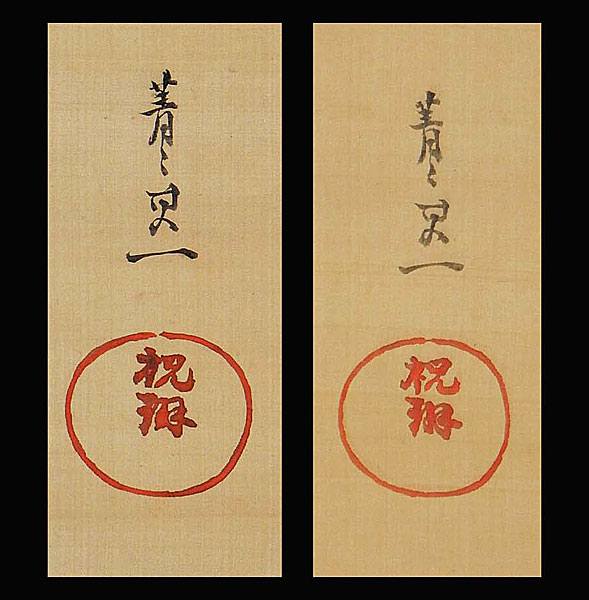 菁々其一
祝琳
菁々其一
祝琳